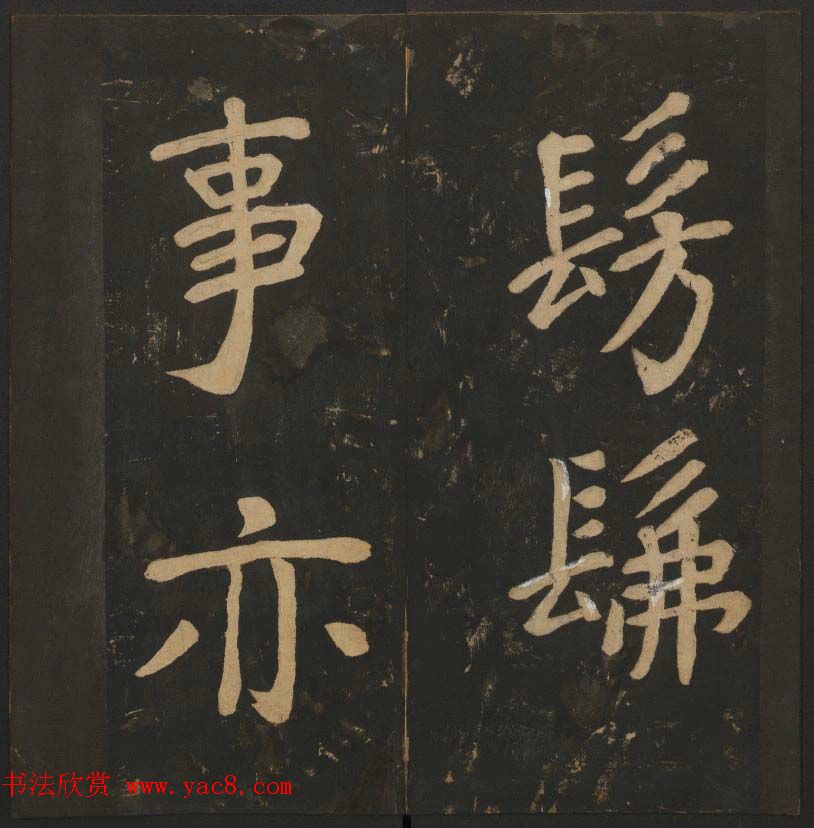 髣髴
事亦
书法欣赏 www.yac8.com